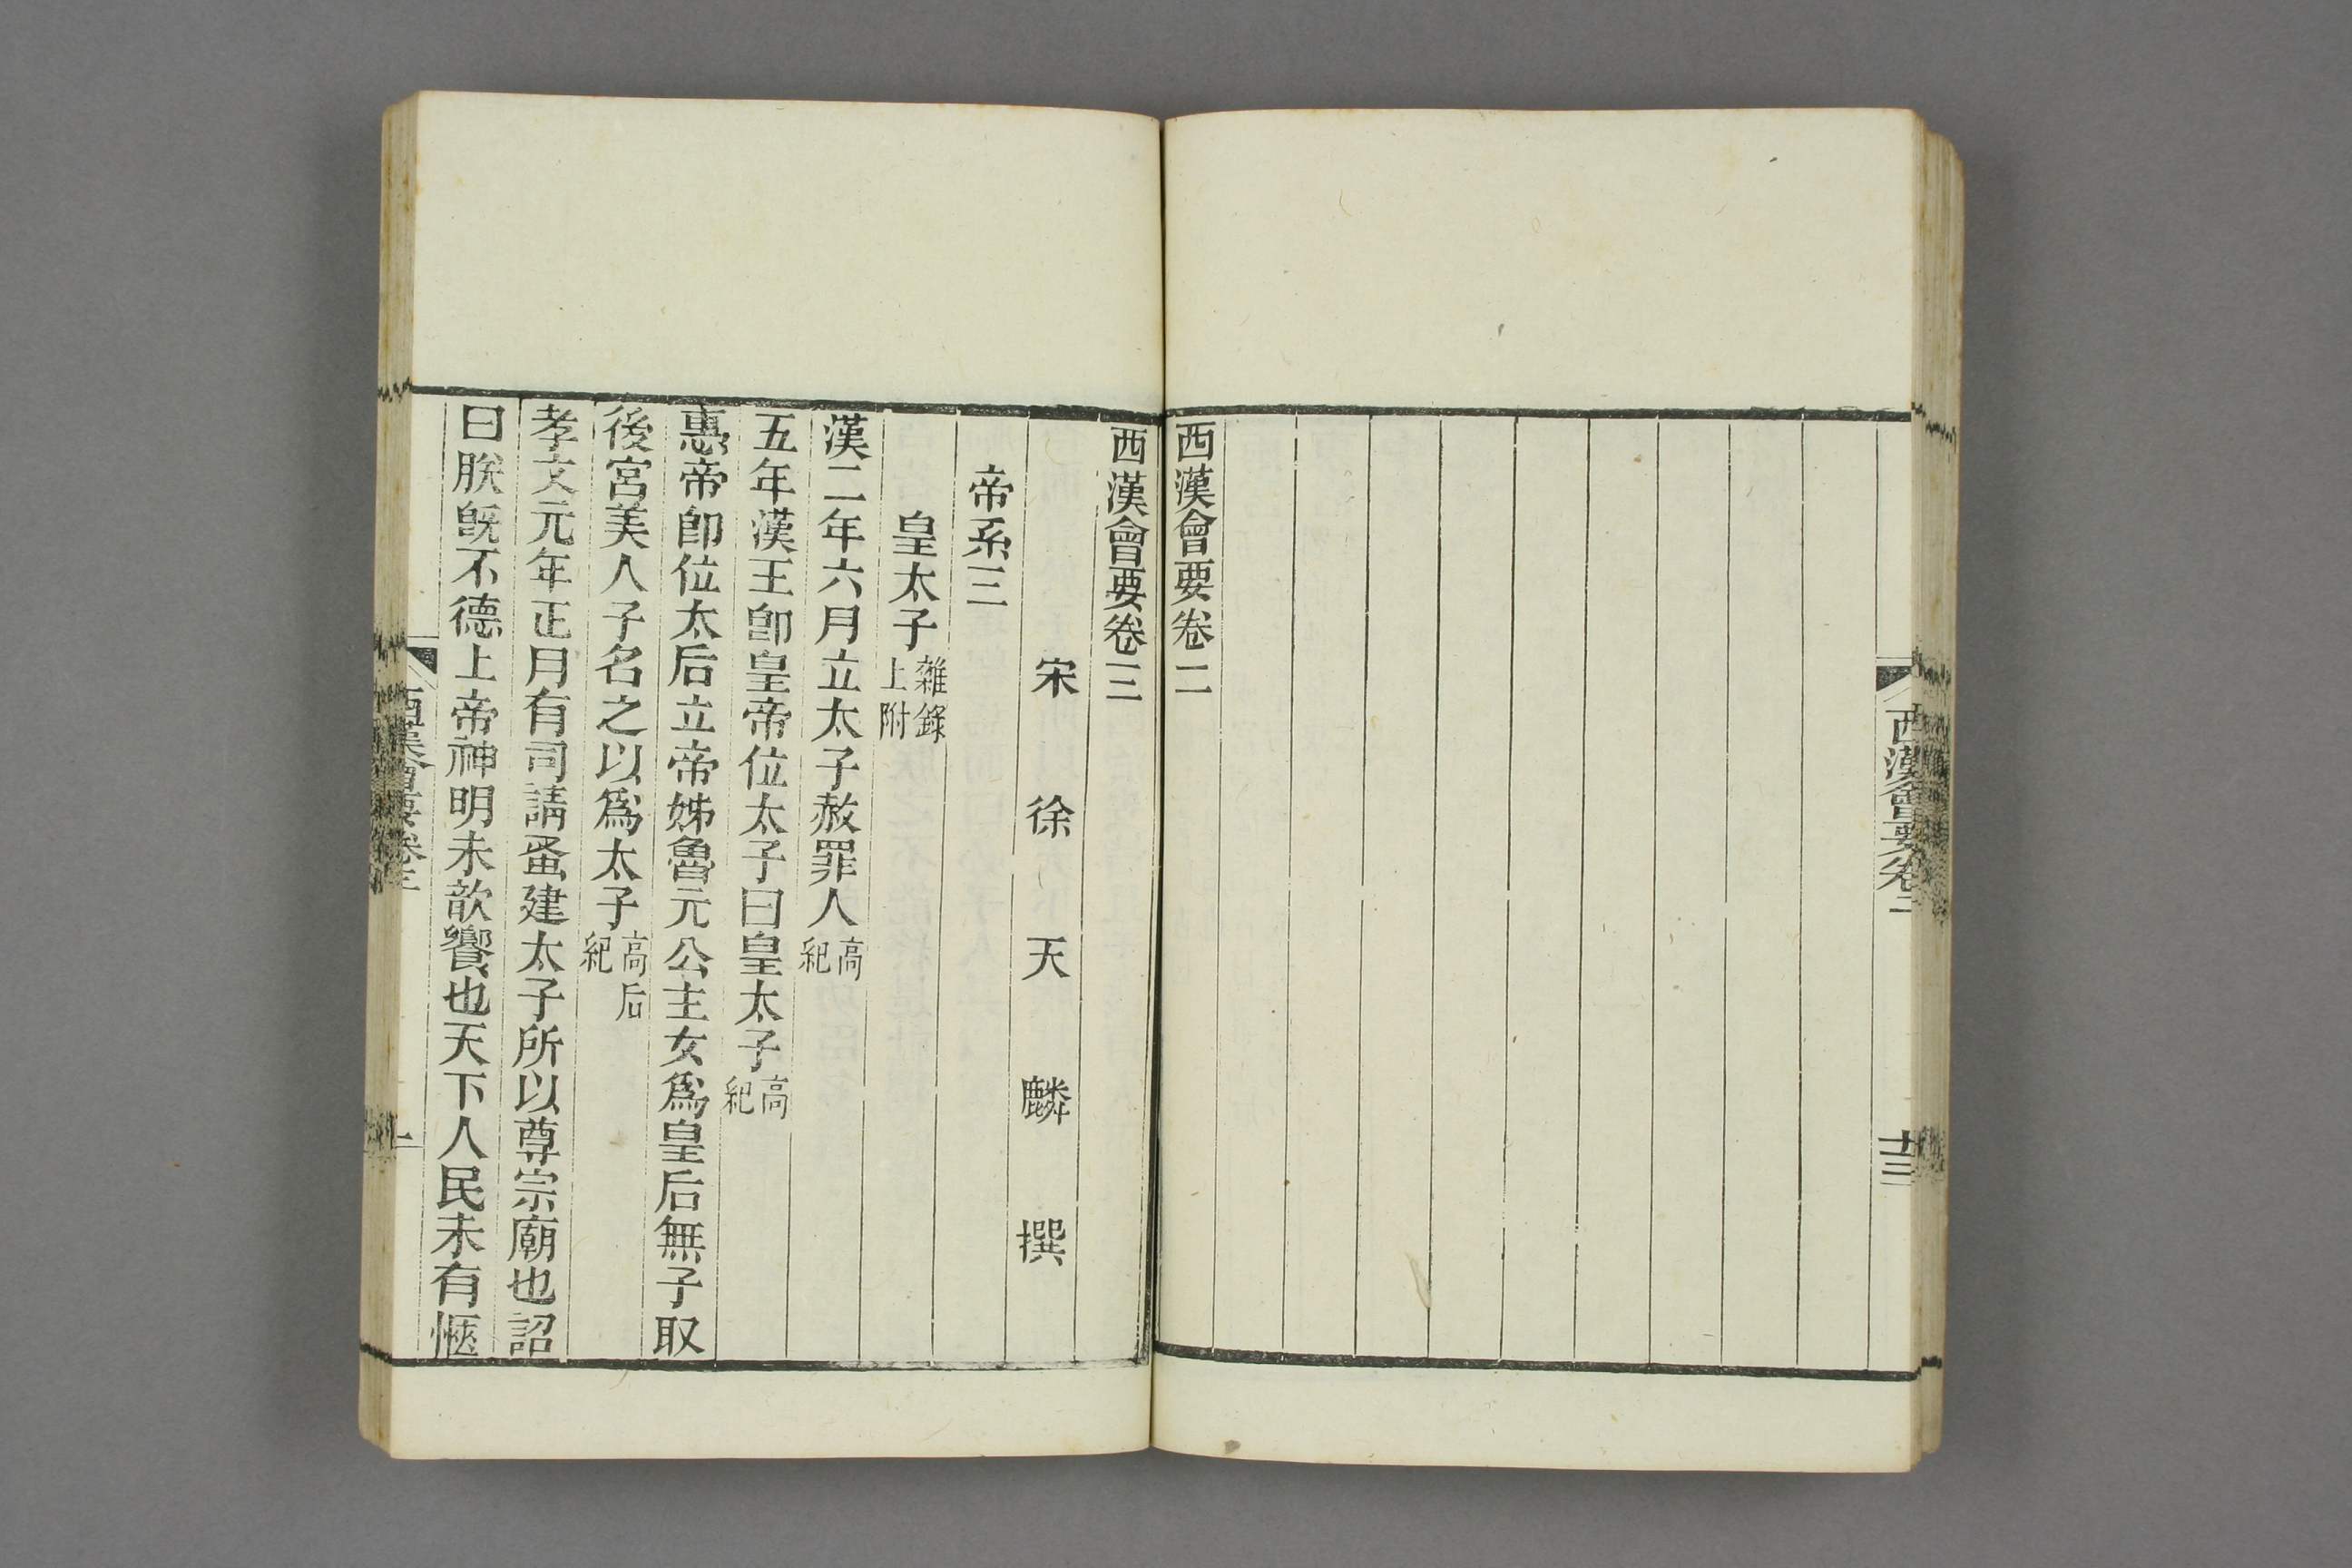 西漢會要卷二
廿三
西漢會要卷二
西漢會要卷三
宋徐天麟撰
帝系三
皇太子雜錄上附
漢二年六月立太子赦罪人高紀
五年漢王卽皇帝位太子曰皇太子高紀
惠帝卽位太后立帝姊魯元公主女爲皇后無子取
後宮美人子名之以爲太子高后紀
孝文元年正月有司請蚤建太子所以尊宗廟也詔
曰朕旣不德上帝神明未歆饗也天下人民未有愜
西漢會要卷三
一